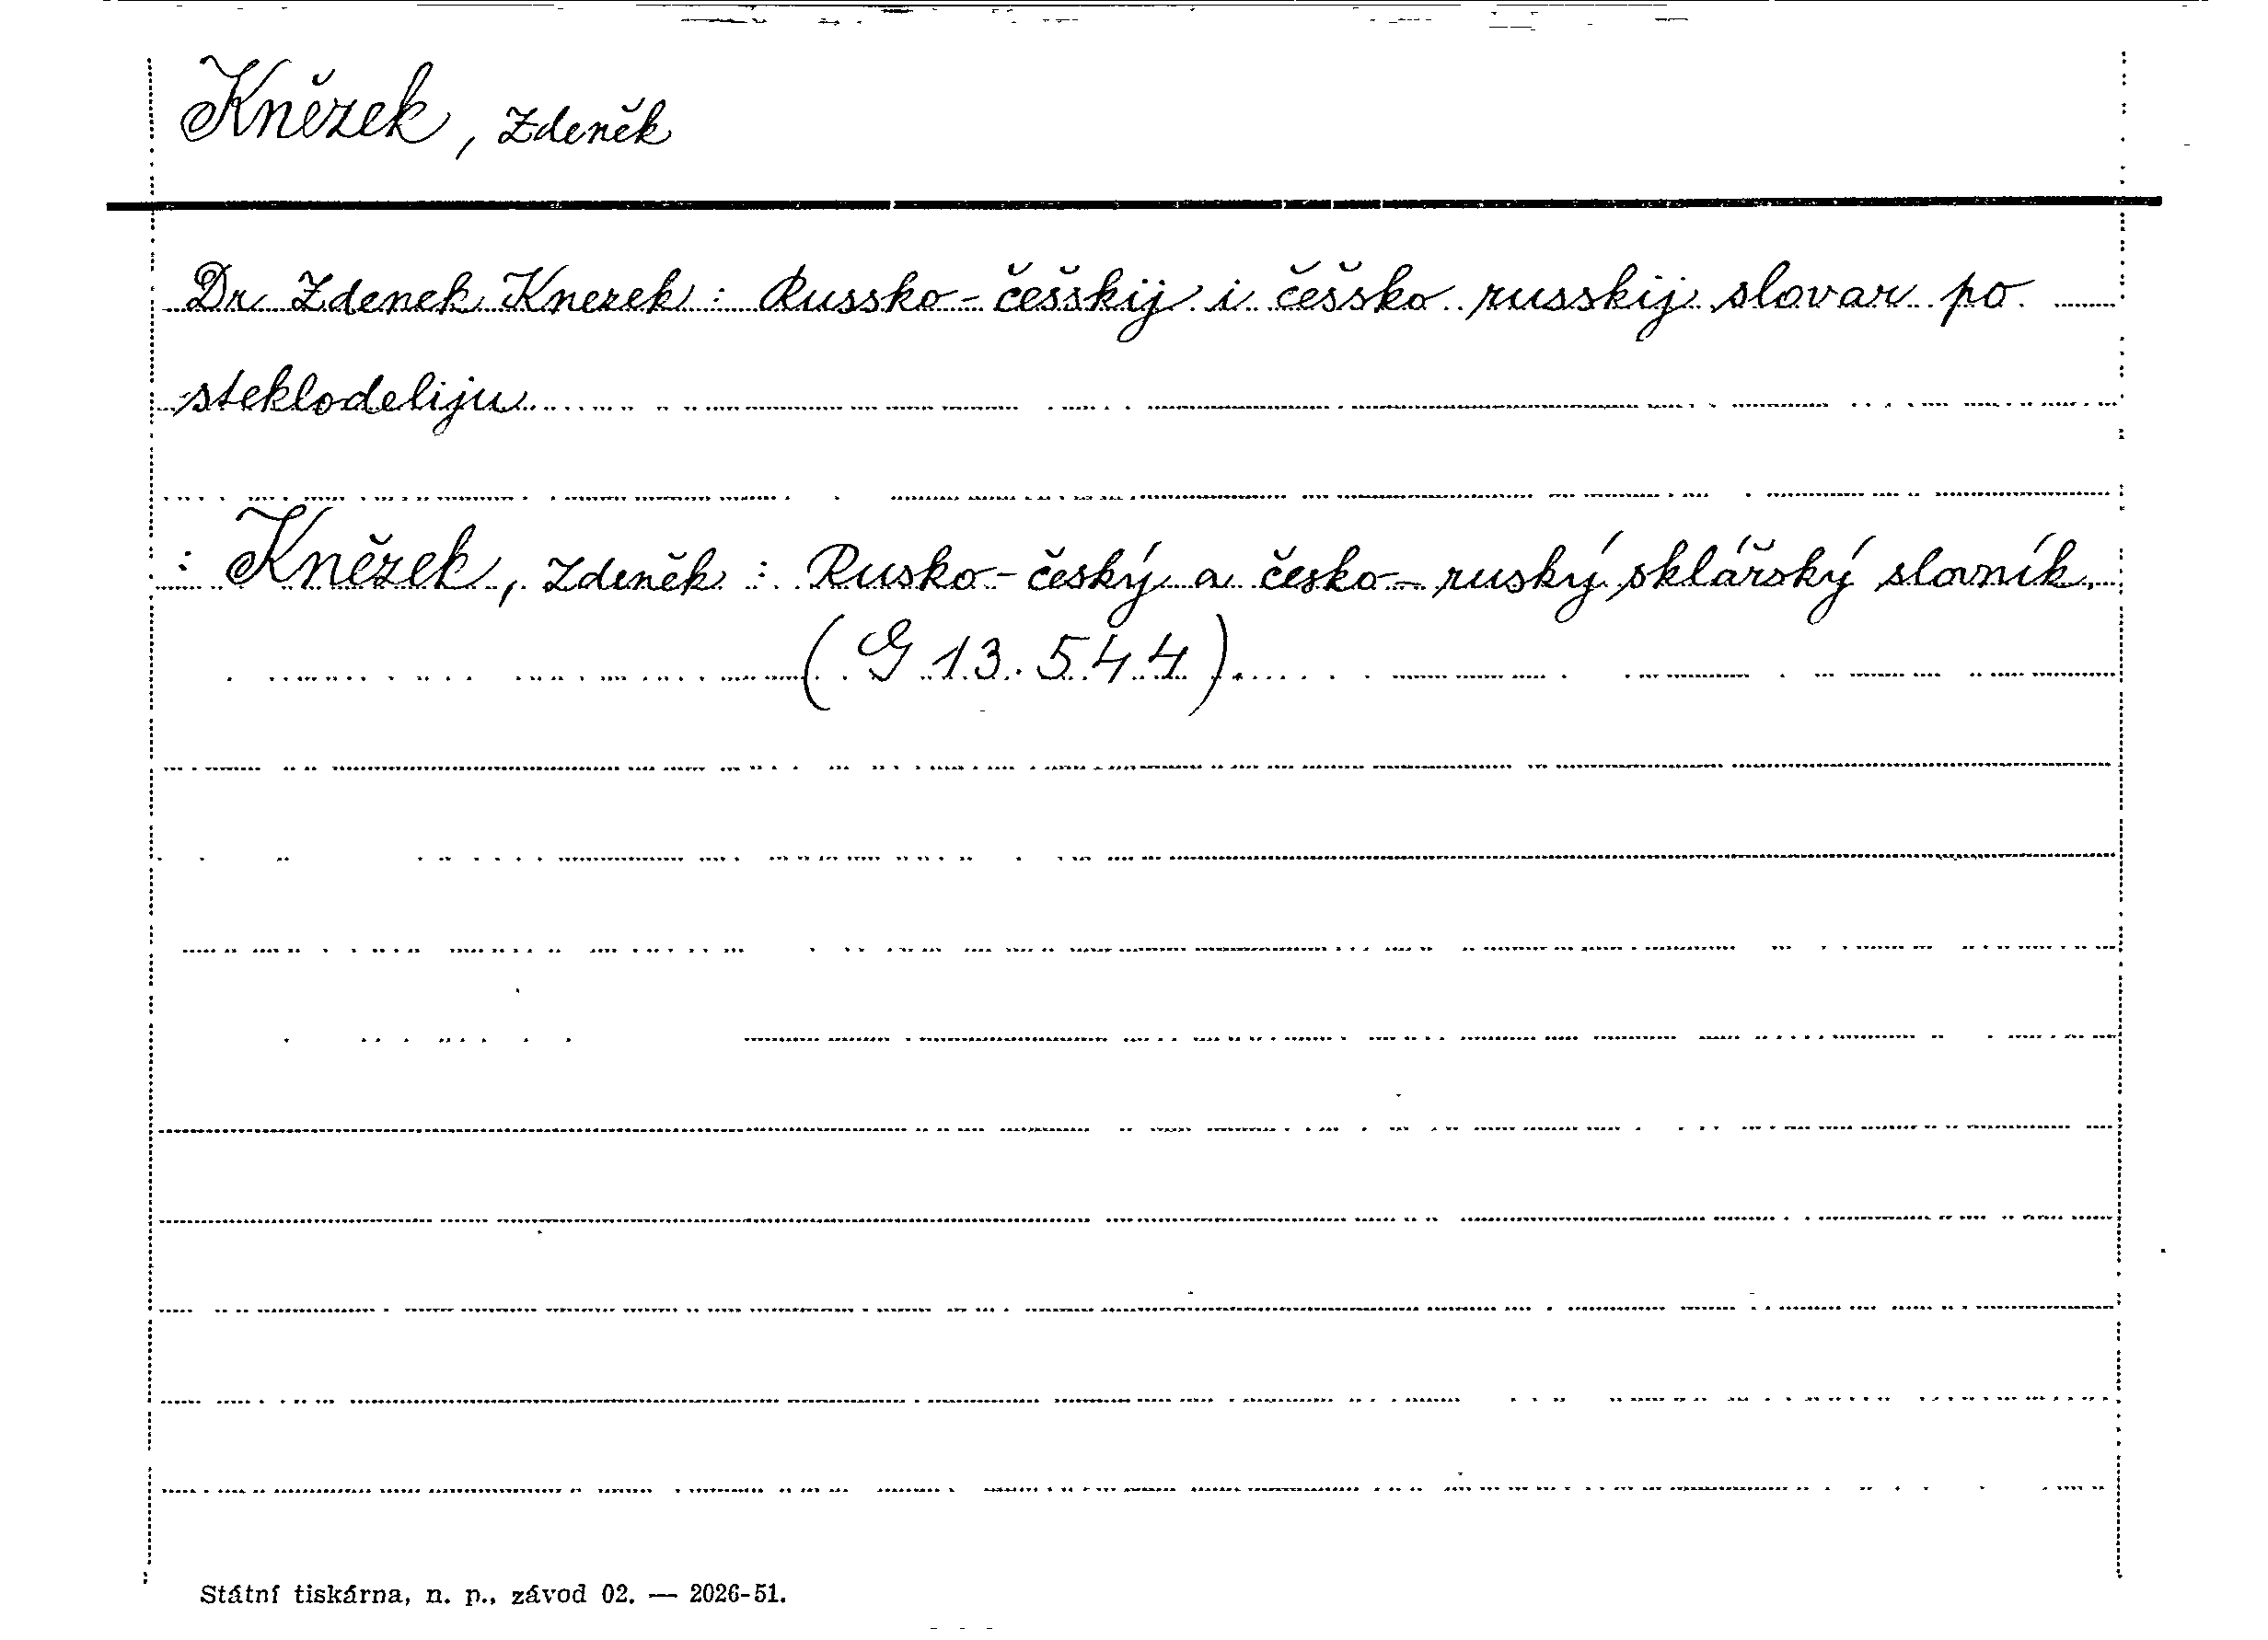 Knězek, Zdeněk
Dr Zdenek Knezek: Russko-češskij i češsko russkij slovar po
steklodeliju
: Knězek, Zdeněk: Rusko-český a česko-ruský sklářský slovník.
(G 13.544).
Státní tiskárna, n. p., závod 02. — 2026-51.